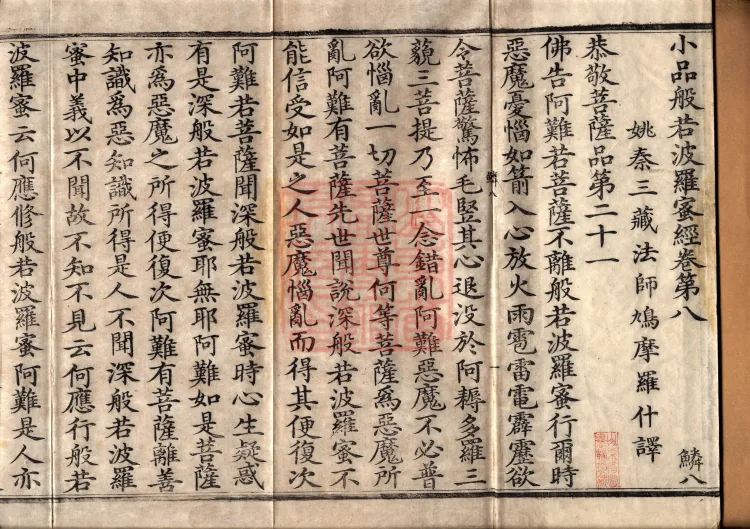 小品般若波羅蜜經卷第八
鱗八
姚秦三藏法師鳩摩羅什譯
恭敬菩薩品第二十一
佛告阿難若菩薩不離般若波羅蜜行爾時
惡魔憂惱如箭入心放火雨雹雷電霹靂欲
令菩薩驚怖毛竪其心退没於阿耨多羅三
藐三菩提乃至一念錯亂阿難惡魔不必普
欲惱亂一切菩薩世尊何等菩薩爲惡魔所
亂阿難有菩薩先世聞說深般若波羅蜜不
能信受如是之人惡魔惱亂而得其便復次
阿難若菩薩聞深般若波羅蜜時心生疑惑
有是深般若波羅蜜耶無耶阿難如是菩薩
亦爲惡魔之所得便復次阿難有菩薩離善
知識爲惡知識所得是人不聞深般若波羅
蜜中義以不聞故不知不見云何應行般若
波羅蜜云何應修般若波羅蜜阿難是人亦
鱗八